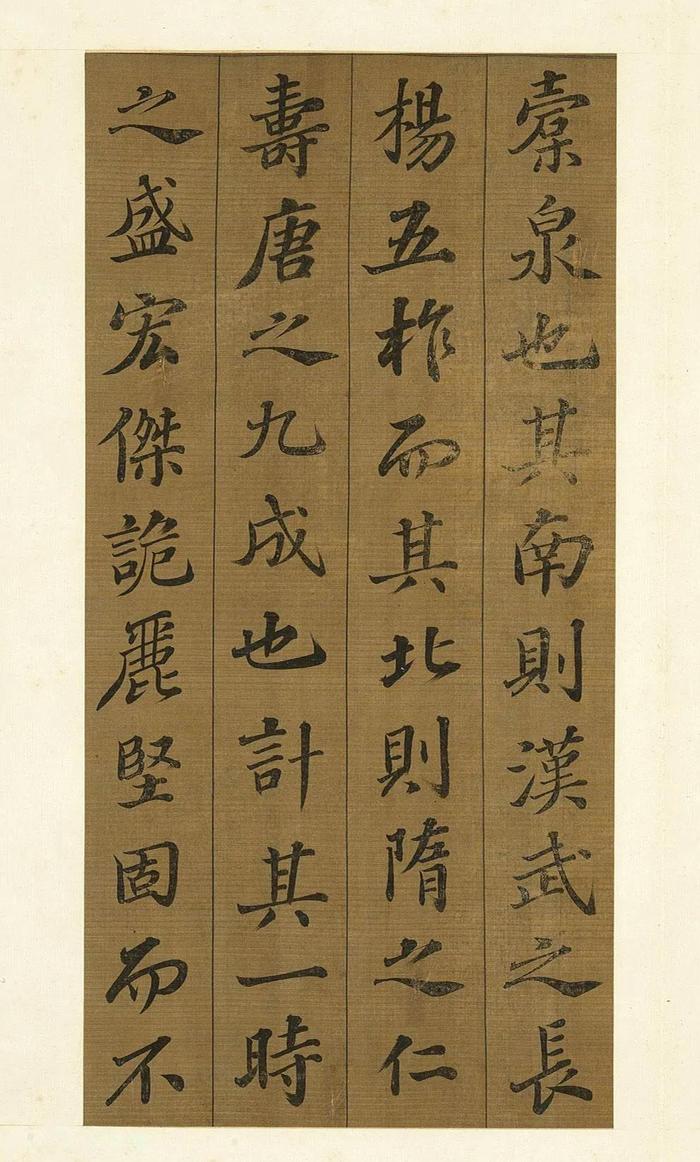 槖泉也其南則漢武之長
楊五柞而其北則隋之仁
壽唐之九成也計其一時
之盛宏傑詭麗堅固而不